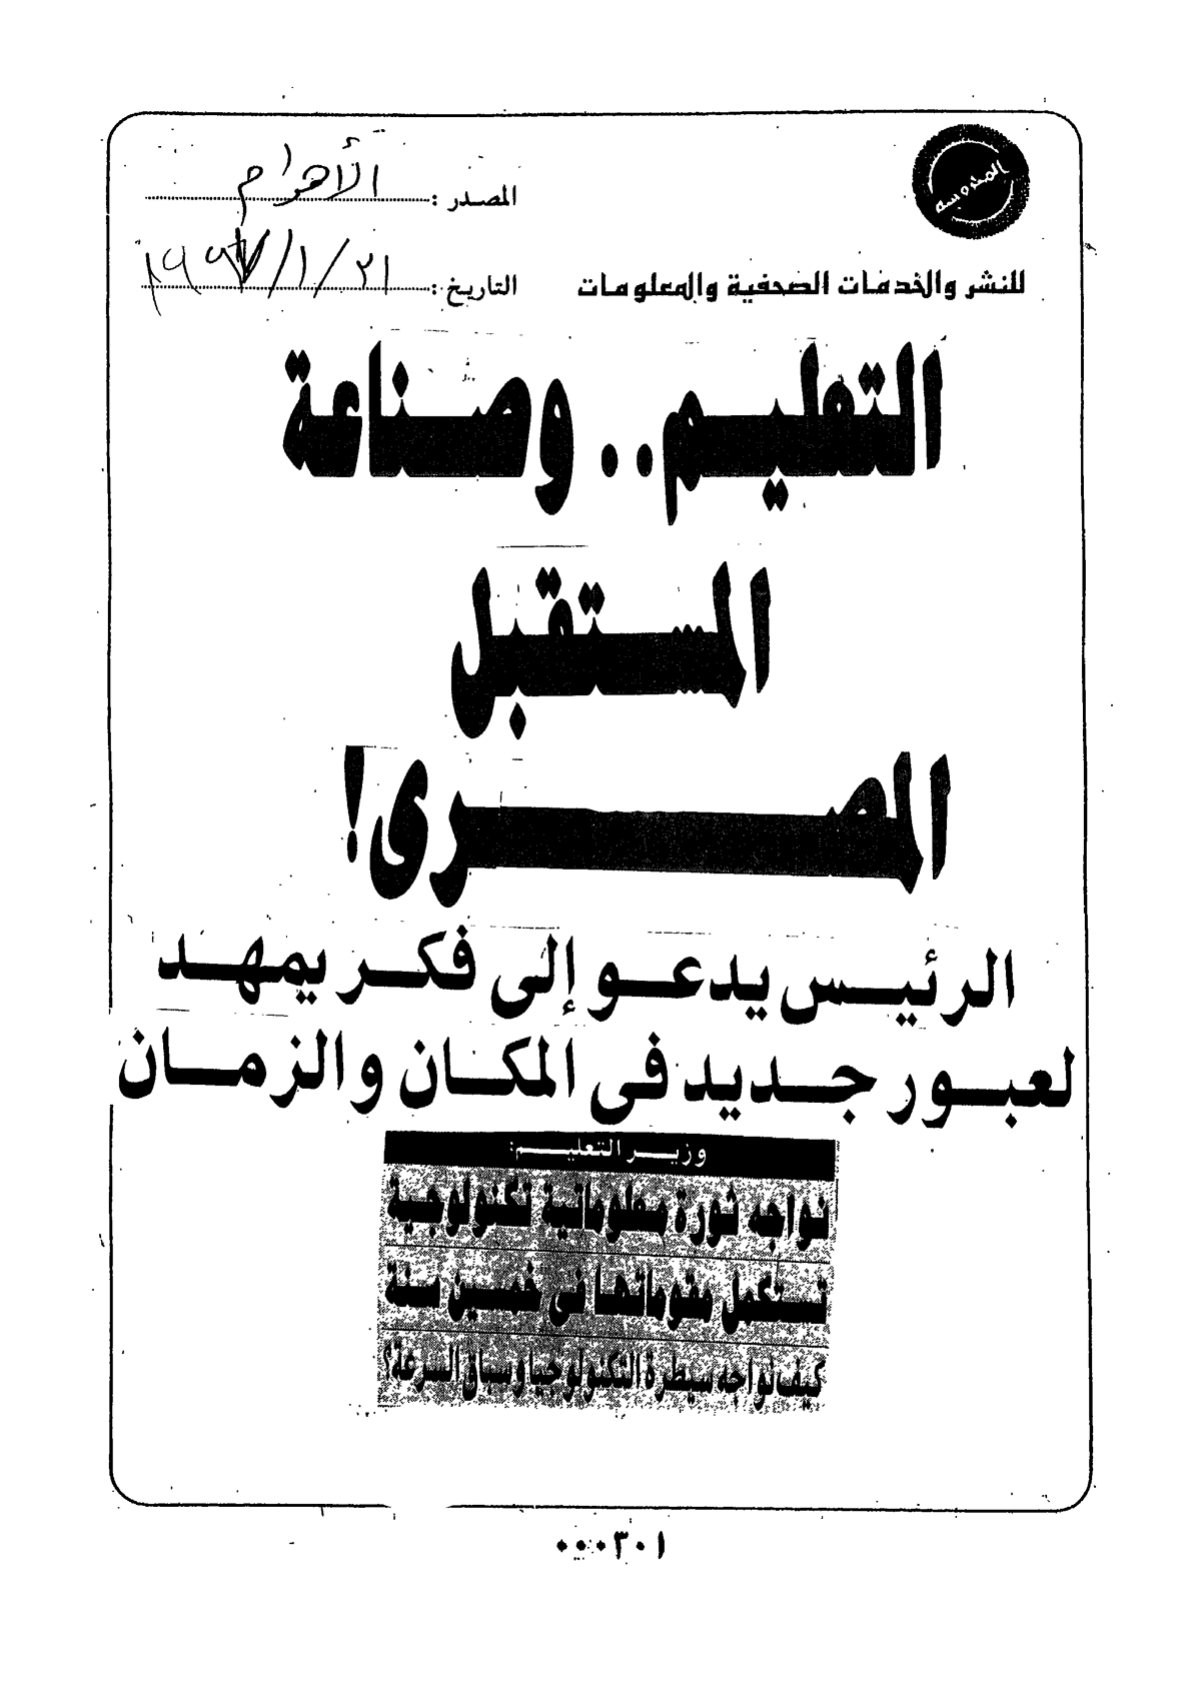 المحروسة
المصدر : الأهرام
للنشر والخدمات الصحفية والمعلومات
التاريخ : ٢١/١/١٩٩٧
التعليم.. وصناعة
المستقبل
المصرى!
الرئيس يدعو إلى فكر يمهد
لعبور جديد فى المكان والزمان
وزير التعليم:
نواجه ثورة معلوماتية تكنولوجية
تستكمل مقوماتها فى خمسين سنة
كيف نواجه سيطرة التكنولوجيا وسباق السرعة؟
٠٠٠٣٠١